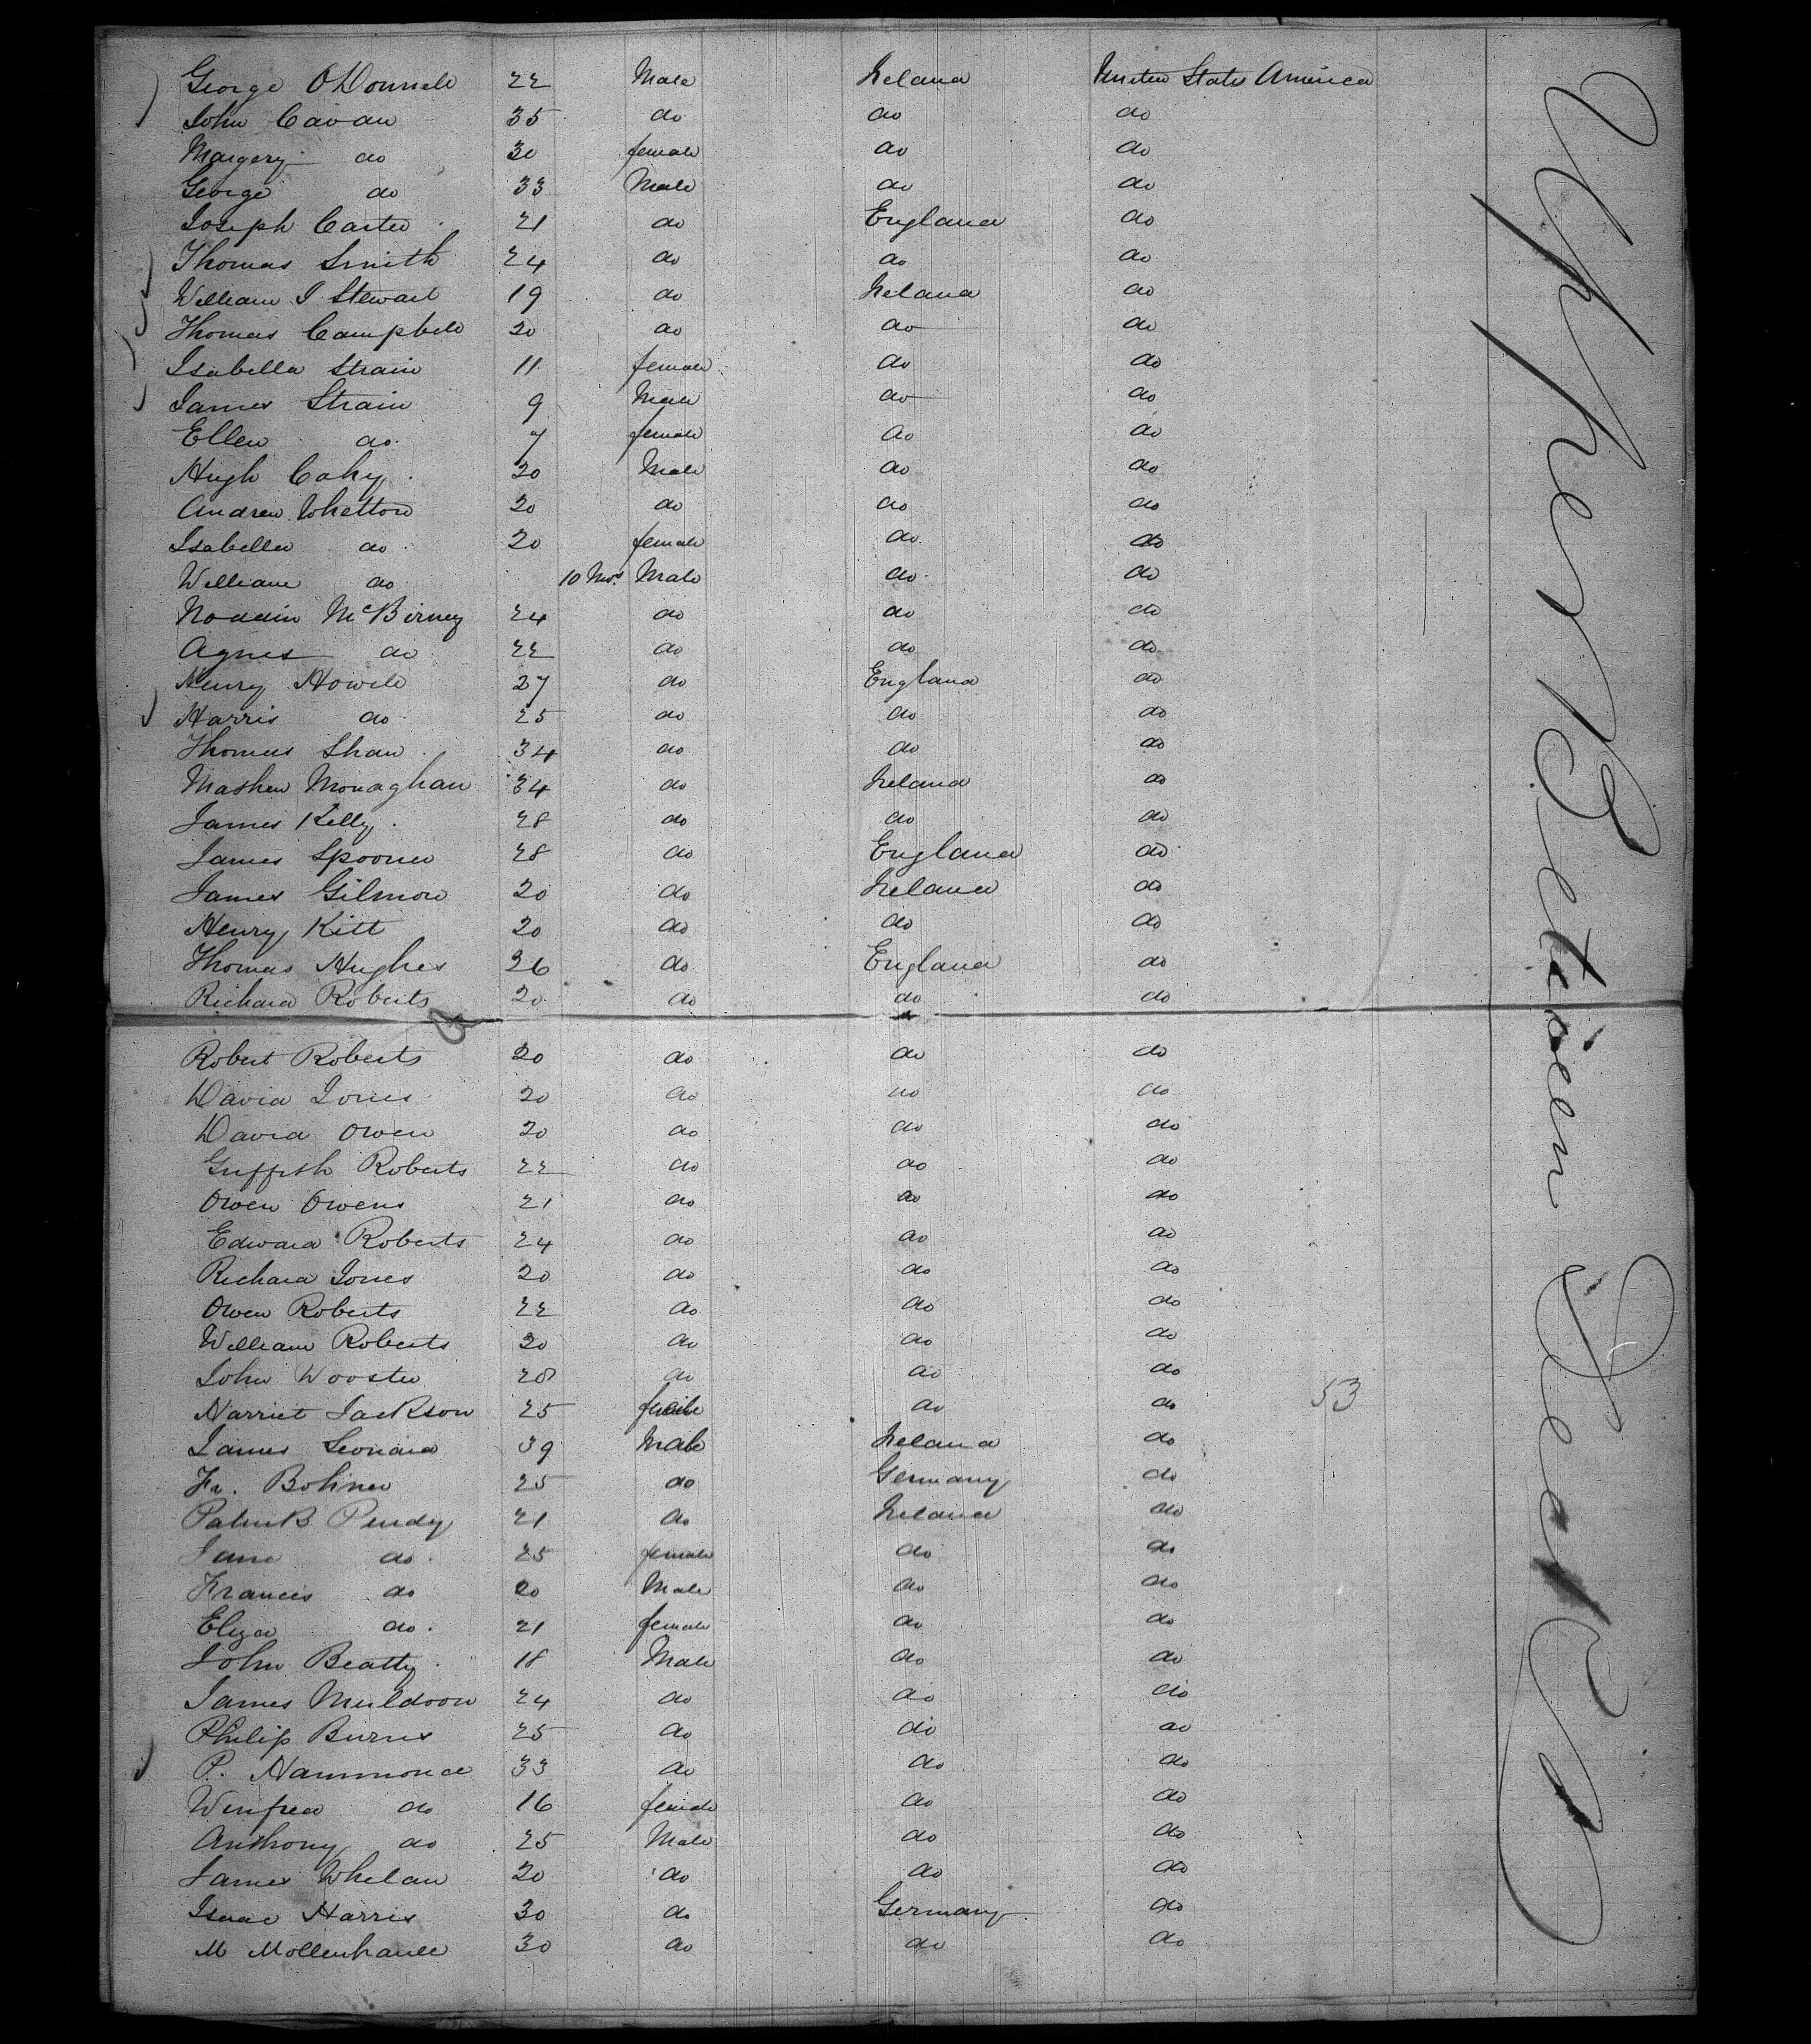 George ODonnell 22 Male Ireland United States America
John Cavan 35 do do do
Margery do 30 female do do
George do 33 Male do do
Joseph Carter 21 do England do
Thomas Smith 24 do do do
William J Stewart 19 do Ireland do
Thomas Campbell 20 do do do
Isabella Strain 11 female do do
James Strain 9 Male do do
Ellen do 7 female do do
Hugh Cahy 20 Male do do
Andrew Whetton 20 do do do
Isabella do 20 female do do
William do 10 Mos Male do do
McBirney 24 do do do
Agnes do 22 do do do
Henry Howell 27 do England do
Harris do 25 do do do
Thomas Shaw 34 do do do
Mathew Monaghan 34 do Ireland do
James Kelly 28 do do do
James Spooner 28 do England do
James Gilmore 20 do Ireland do
Henry Kitt 20 do do do
Thomas Hughes 26 do England do
Richard Roberts 20 do do do
Robert Roberts 20 do do do
David Jones 20 do do do
David Owen 20 do do do
Griffith Roberts 22 do do do
Owen Owens 21 do do do
Edward Roberts 24 do do do
Richard Jones 20 do do do
Owen Roberts 22 do do do
William Roberts 20 do do do
John Wooster 28 do do do
Harriet Jackson 25 female do do 53
James Leonard 39 Male Ireland do
Fr. Bohner 25 do Germany do
Patrick Purdy 21 do Ireland do
Jane do 25 female do do
Francis do 20 Male do do
Eliza do 21 female do do
John Beatty 18 Male do do
James Muldoon 24 do do do
Philip Burns 25 do do do
P. Hammond 33 do do do
Winfred do 16 female do do
Anthony do 25 Male do do
James Whelan 20 do do do
Isaac Harris 30 do Germany do
M Mollenhauer 30 do do do
Upper Between Deck